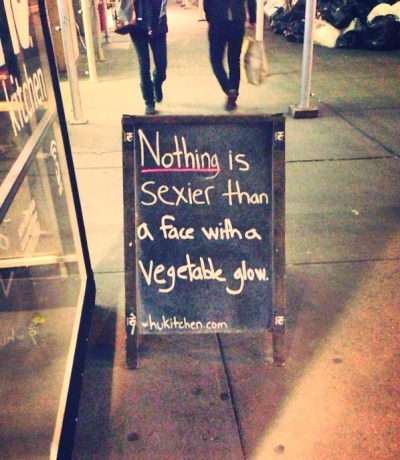 kitchen
Nothing is
sexier than
a face with a
vegetable glow.
hukitchen.com